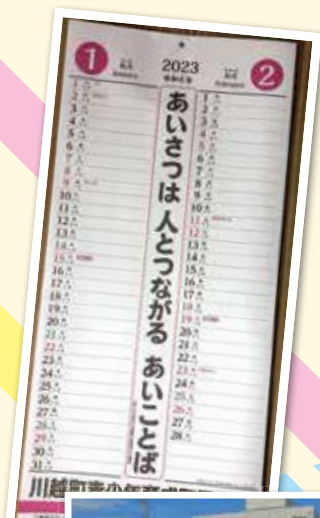 1
2023
2
あいさつは 人とつながる あいことば
1
2
3
4
5
6
7
8
9
10
11
12
13
14
15
16
17
18
19
20
21
22
23
24
25
26
27
28
29
30
31
1
2
3
4
5
6
7
8
9
10
11
12
13
14
15
16
17
18
19
20
21
22
23
24
25
26
27
28
川越町青少年育成